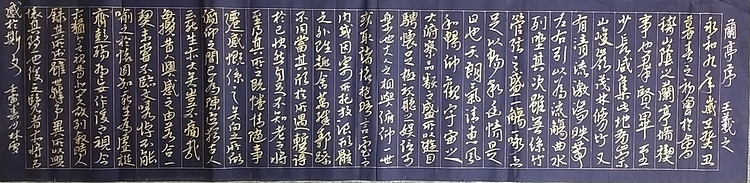 蘭亭序 王羲之
永和九年歲在癸丑
暮春之初會於會
稽山陰之蘭亭脩禊
事也群賢畢至
少長咸集此地有崇
山峻嶺茂林脩竹又
有清流激湍映帶
左右引以為流觴曲水
列坐其次雖無絲竹
管弦之盛一觴一詠亦
足以暢敘幽情是
日也天朗氣清惠風
和暢仰觀宇宙之
大俯察品類之盛所以遊目
騁懷足以極視聽之娛信可
樂也夫人之相與俯仰一世
或取諸懷抱晤言一室之
內或因寄所託放浪形骸
之外雖趣舍萬殊靜躁
不同當其欣於所遇暫得
於己快然自足不知老之將
至及其所之既惓情隨事
遷感慨係之矣向之所欣
俯仰之間已為陳迹
豈不痛哉
攬昔人興感之由若合一
契未嘗不臨文嗟悼不能
喻之於懷固知一死生為虛誕
齊彭殤為妄作後之視今
亦猶今之視昔悲夫故列敘時人
錄其所述雖世殊事異所以興
懷其致一也後之覽者亦將有
感於斯文 壬寅